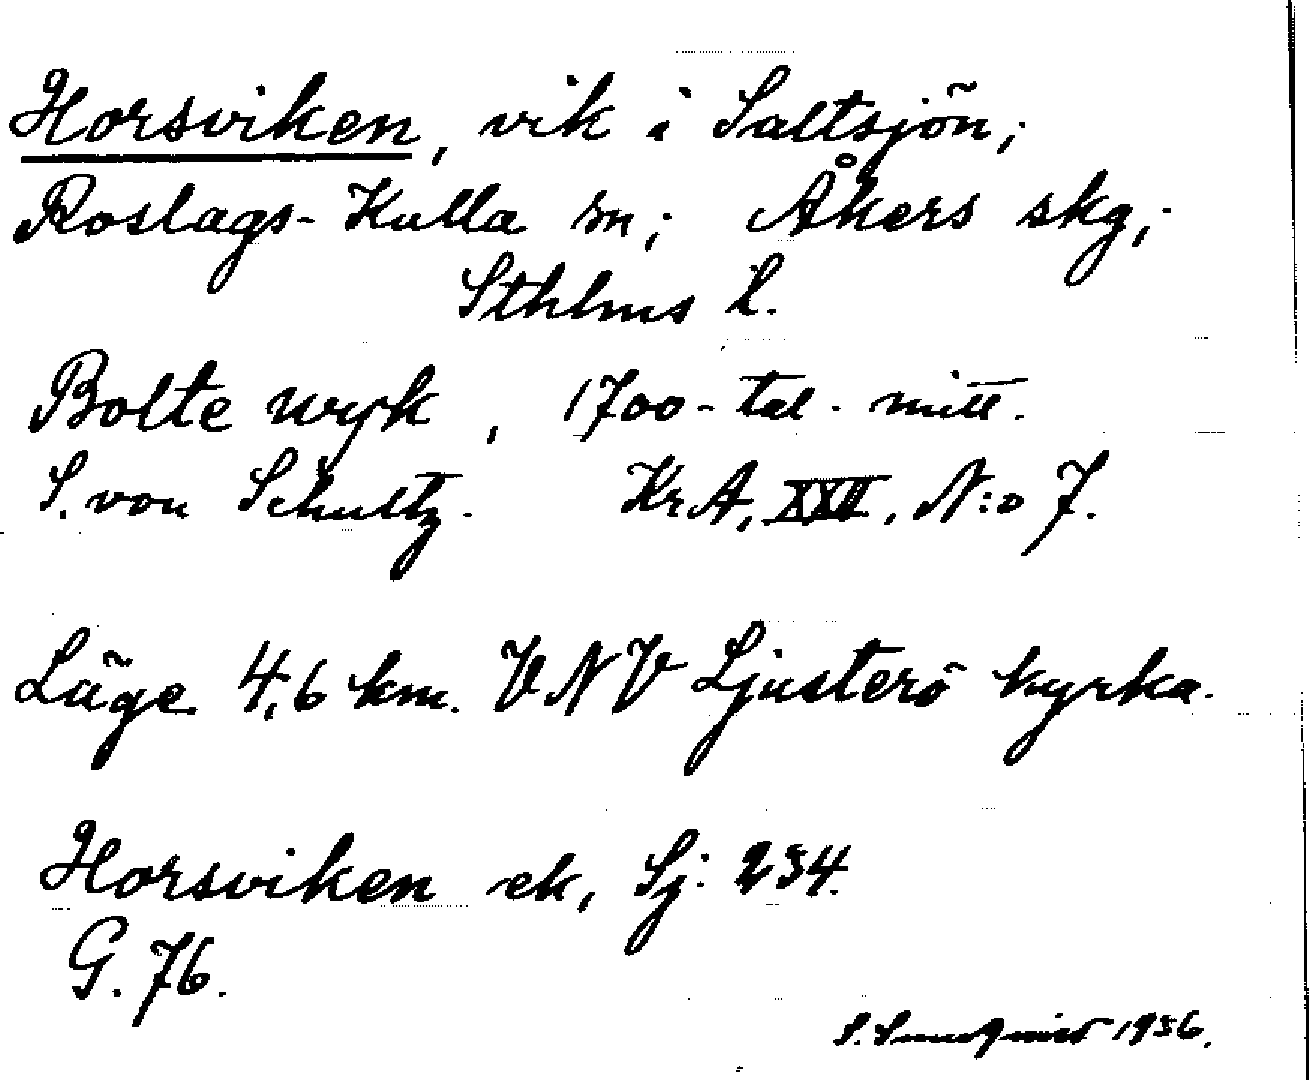 Horsviken, vik i Saltsjön;
Roslags-Kulla sn; Åkers skg;
Sthlms l.
Bolte wyk, 1700-tal. mitt.
S. von Schultz. KrA, XXII, N:o 7.
Läge 4,6 km. VNV Ljusterö kyrka.
Horsviken ek, Sj: 234.
G. 76.
S. Sundqvist 1936.